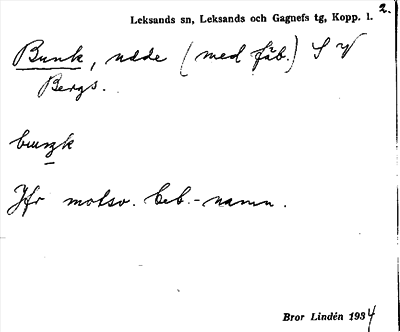 2.
Leksands sn, Leksands och Gagnefs tg, Kopp. l.
Bunk, udde (med fäb.) S V
Bergs.
buŋk
Jfr motsv. beb.-namn.
Bror Lindén 1934